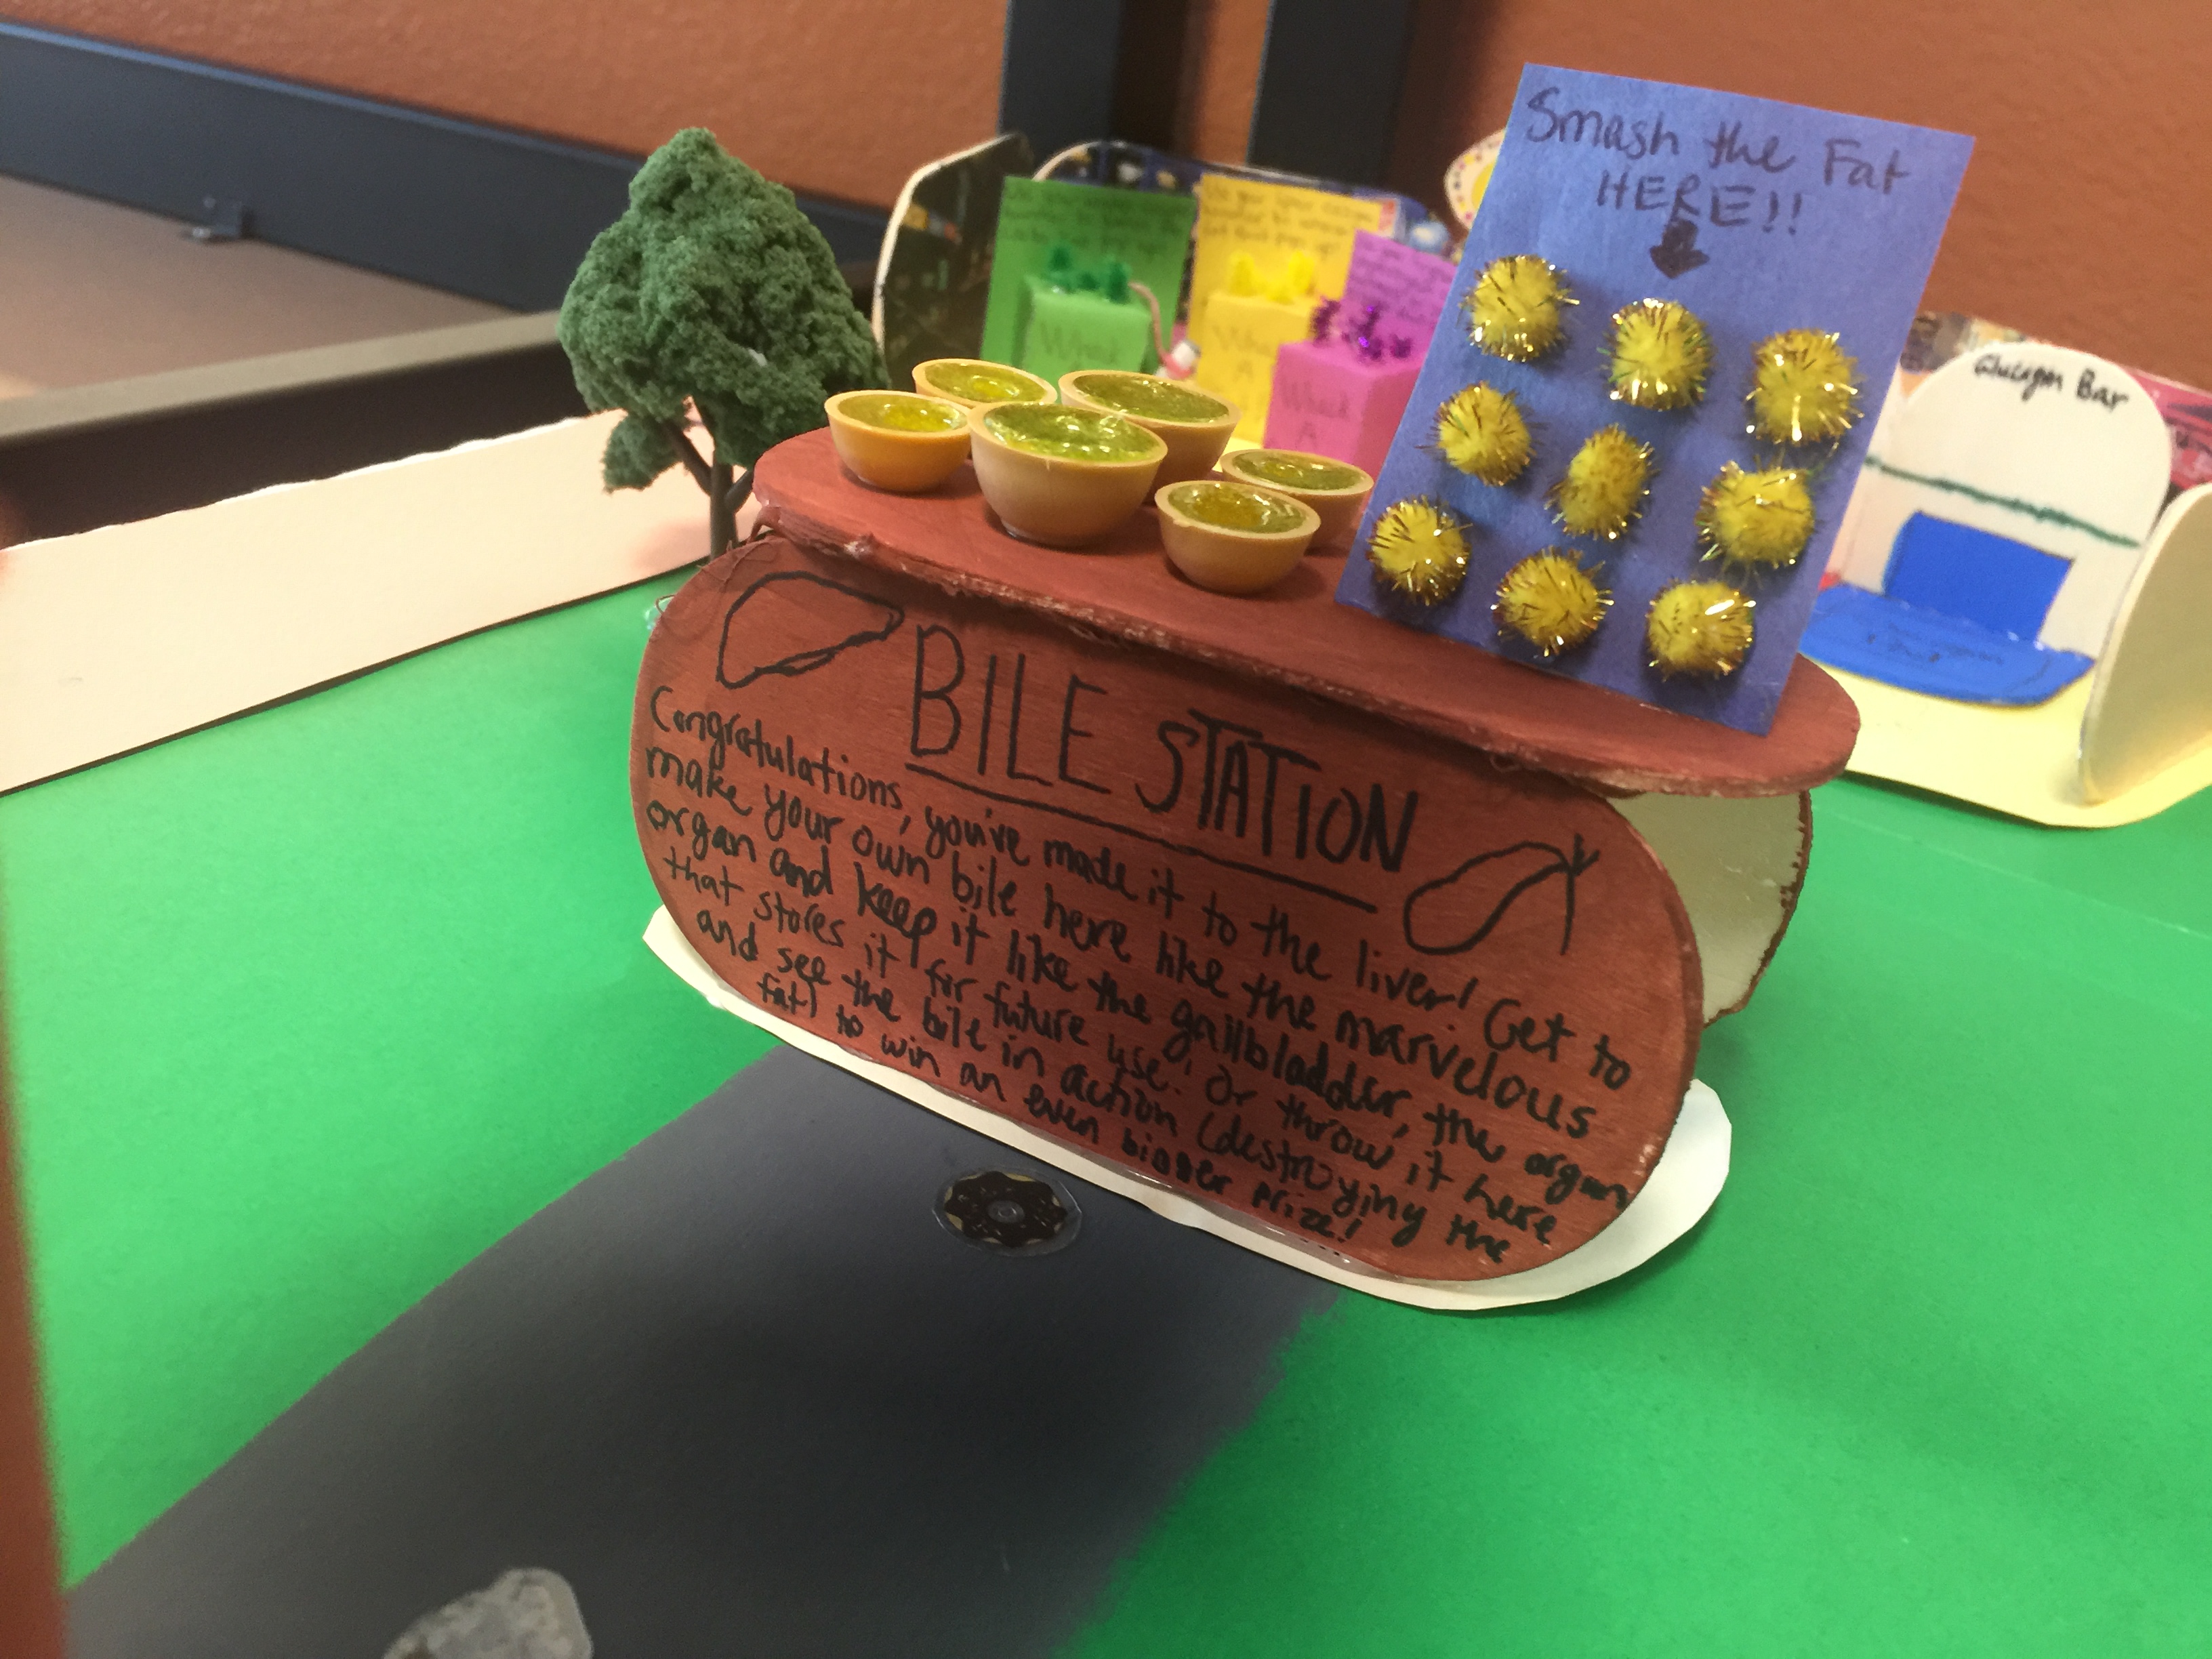 Smash the Fat
HERE!!
Whack
Whack
A
Whack
A
Glucagon Bar
BILE STATION
Congratulations, you've made it to the liver! Get to
make your own bile here like the marvelous
organ and keep it like the gallbladder, the organ
that stores it for future use! Or throw it here
and see the bile in action (destroying the
fat) to win an even bigger prize!